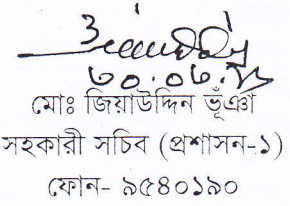 মোঃ জিয়াউদ্দিন ভূঁঞা
সহকারী সচিব (প্রশাসন-১)
ফোন- ৯৫৪০১৯০